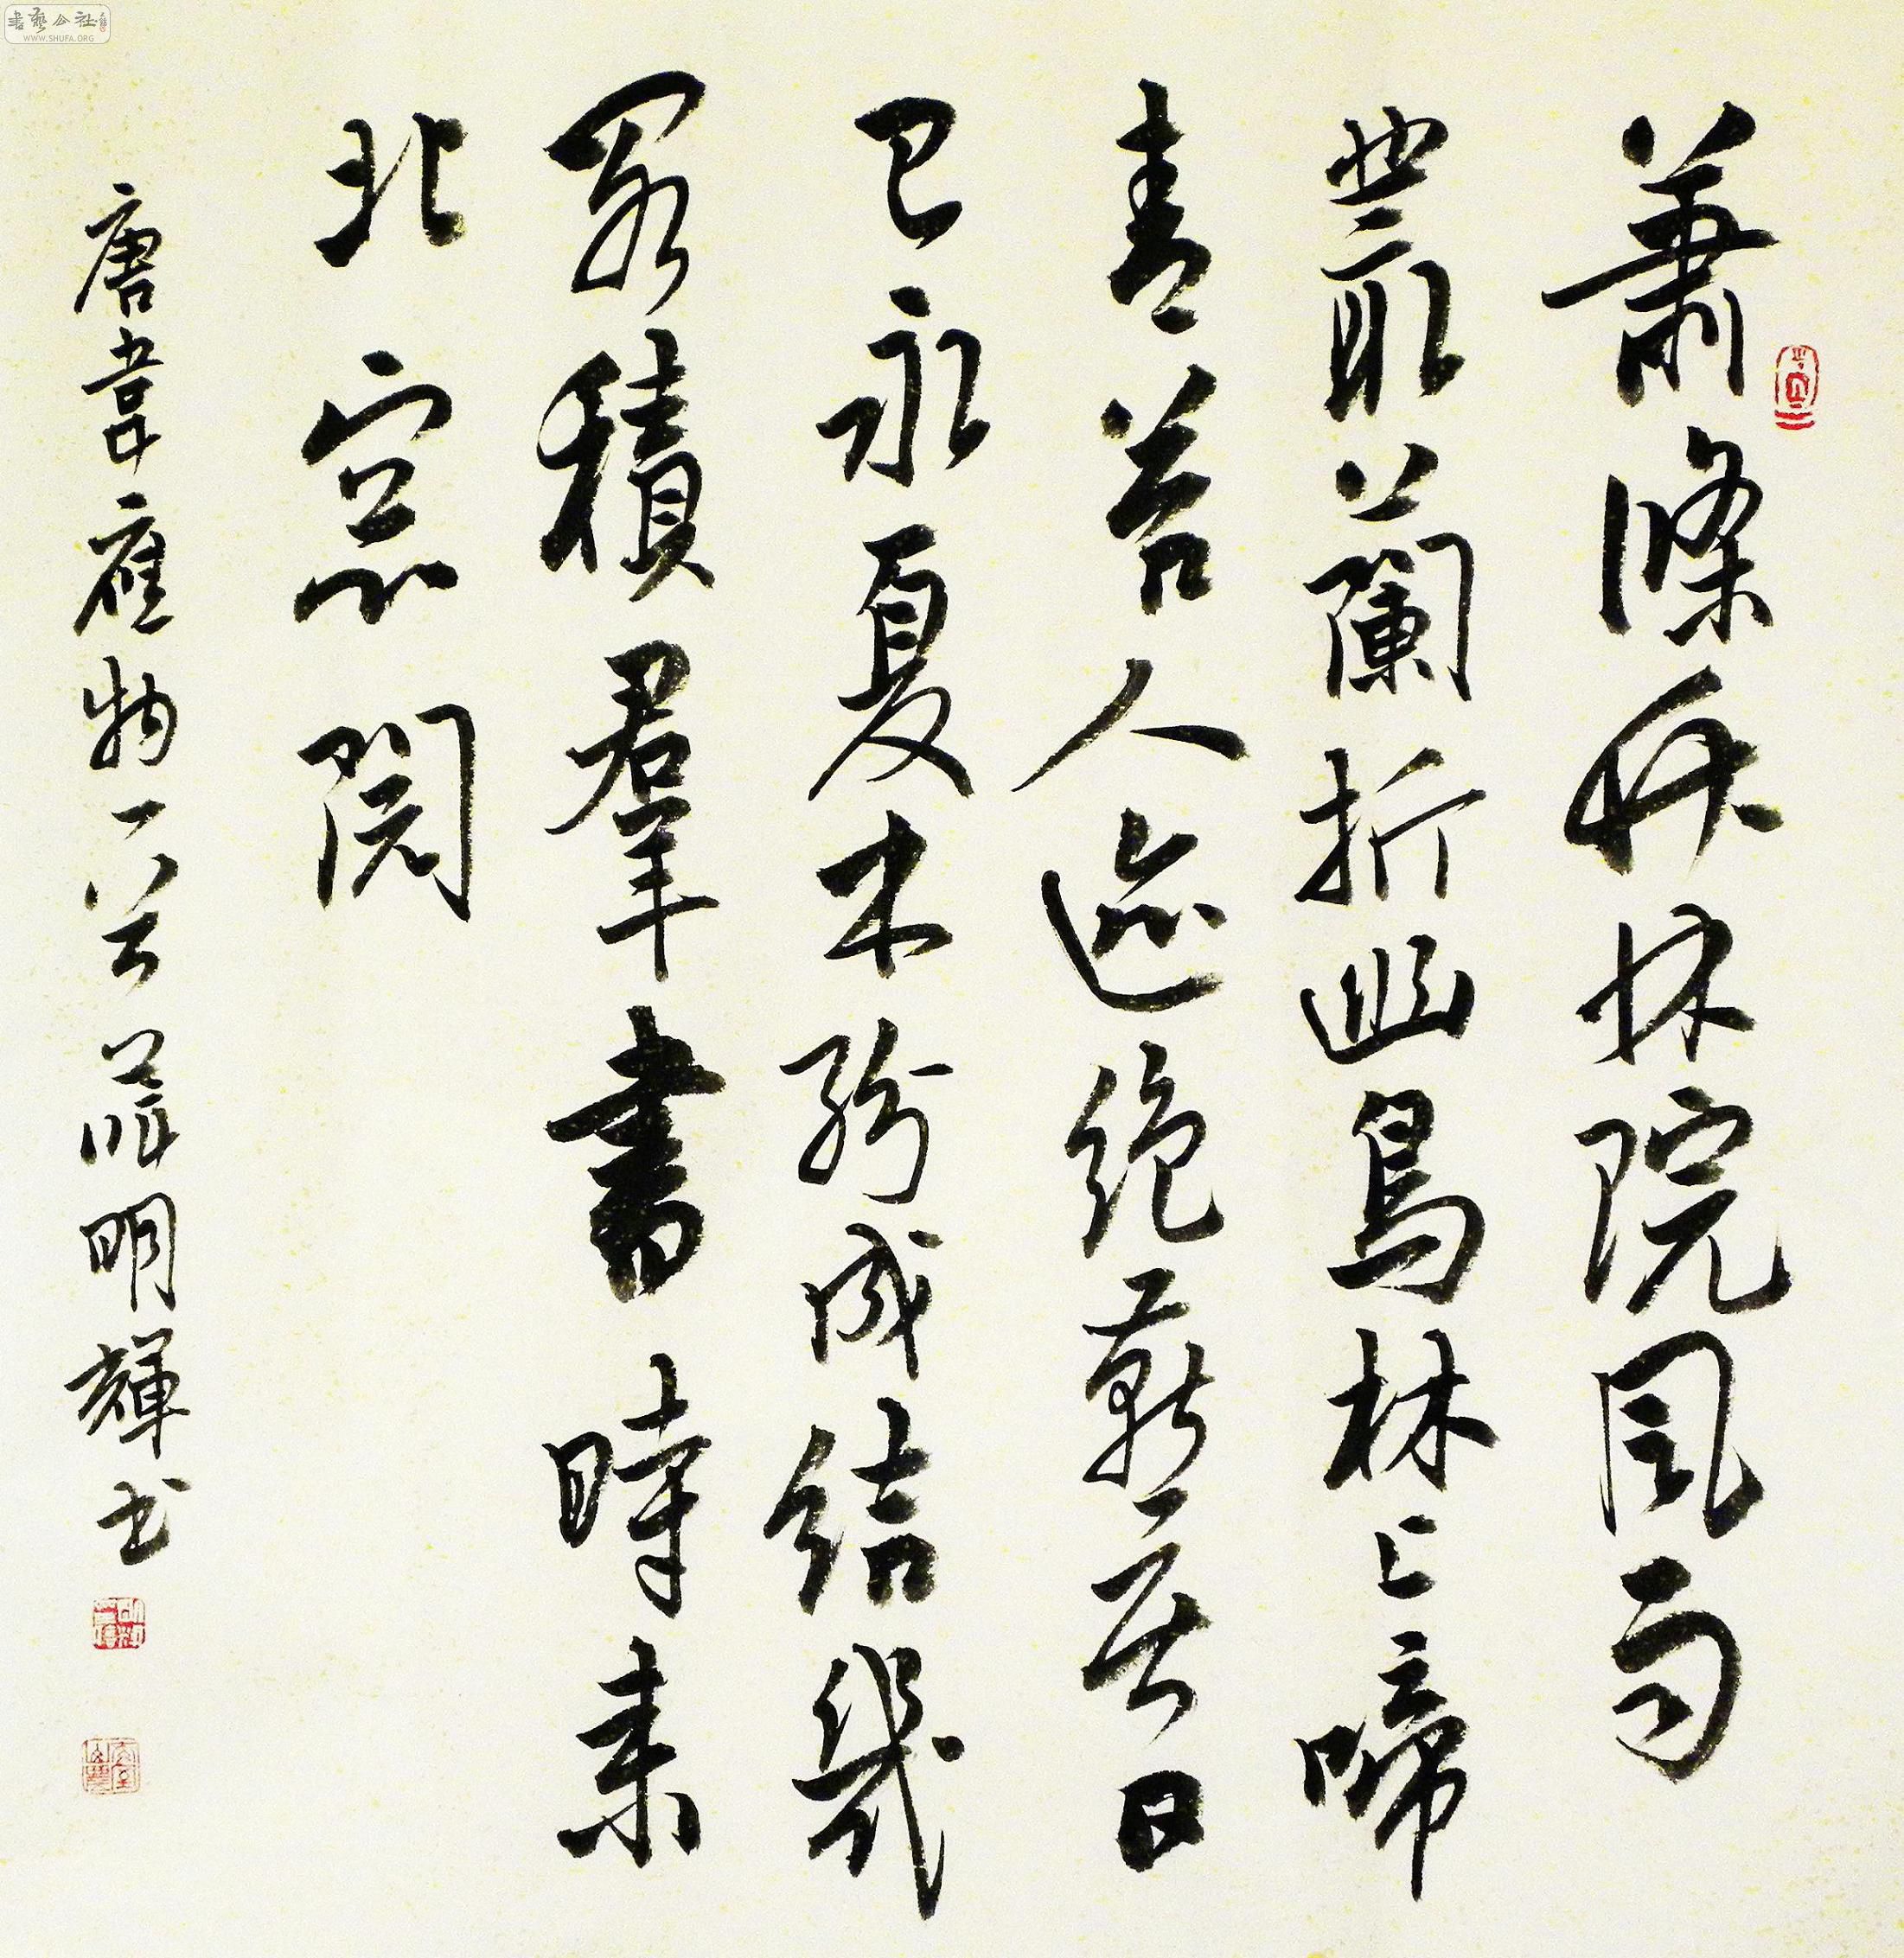 蕭條竹林院風雨
叢蘭折幽鳥林上啼
青苔人迹絕燕居日
已永夏木紛成結幾
閣積羣書時來
北窓閱
唐韋應物一首明輝书
書藝公社
WWW.SHUFA.ORG